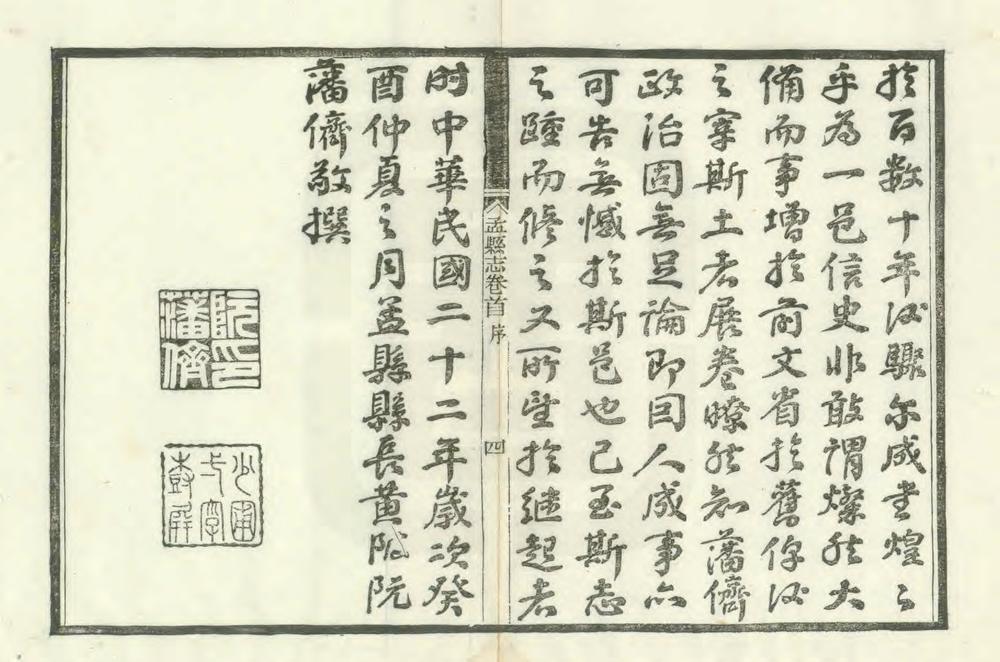 於百数十年後驟尔成書煌々
乎為一邑信史非敢謂燦然大
備而事增於前文省於舊俾後
之宰斯土者展卷瞭然知藩儕
政治固無足論即因人成事亦
可告無憾於斯邑也已至斯志
之踵而修之又所望於继起者
孟縣志卷首 序 四
时中華民國二十二年歲次癸
酉仲夏之月孟縣縣長黃陂阮
藩儕敬撰
阮印
藩儕